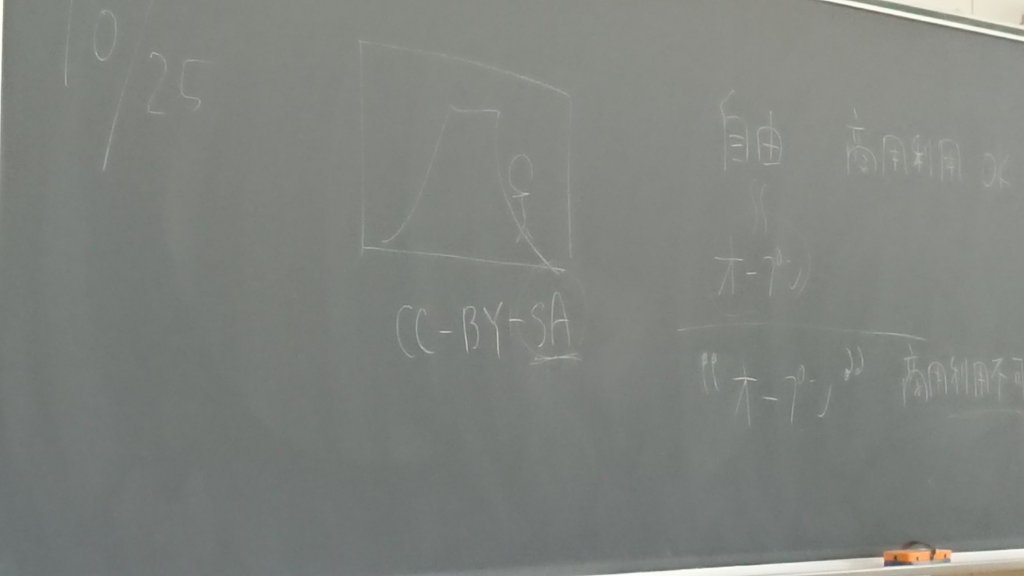 10/25
CC-BY-SA
自由 商用利用 OK
=
オープン
"オープン" 商用利用不可